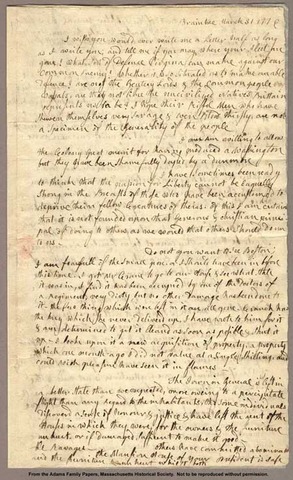 Braintree March 31 1776
I wish you would ever write me a Letter half as long
as I write you; and tell me if you may where your Fleet are
gone? What sort of Defence Virginia can make against our
common Enemy? Whether it is so situated as to make an able
Defence? Are not the Gentery Lords and the common people
vassals, are they not like the uncivilized Natives Brittain
represents us to be? I hope their Riffel Men who have
shewen themselves very savage & even Blood thirsty; are not
a specimen of the Generality of the people.
I am willing to allow
the Colony great merrit for having produced a Washington
but they have been shamefully duped by a Dunmore.
I have sometimes been ready
to think that the passion for Liberty cannot be Eaquelly
Strong in the Breasts of those who have been accustomed to
deprive their fellow Creatures of theirs. Of this I am certain
that it is not founded upon that generous & christian princi
pal of doing to others as we would that others should do un
to us.
Do not you want to see Boston;
I am fearfull of the small pox, or I should have been in before
this time. I got Mr Crane to go to our House & see what state
it was in. I find it has been occupied by one of the Doctors of
a Regiment, very dirty, but no other damage has been done to
it. the few things which were left in it are all gone.
the key which he never delivered up. I have wrote to him for it
& am determined to get it cleand as soon as possible & shut it
up. I look upon it a new acquisition of property, a property
which one month ago I did not value at a single Shilling, and
could with pleasure have seen it in flames.
The Town in General is left in
a better state than we expected, more oweing to a percipitate
flight than any regard to the inhabitants, tho some individuals
discoverd a sense of honour & justice & have left the rent of the
Houses in which they were, for the owners & the furniture
unhurt, or if damaged sufficent to make it good.
others have committed abominable
Ravages. the Mansion House of your President is safe
and the furniture unhurt
From the Adams Family Papers, Massachusetts Historical Society. Not to be reproduced without permission.